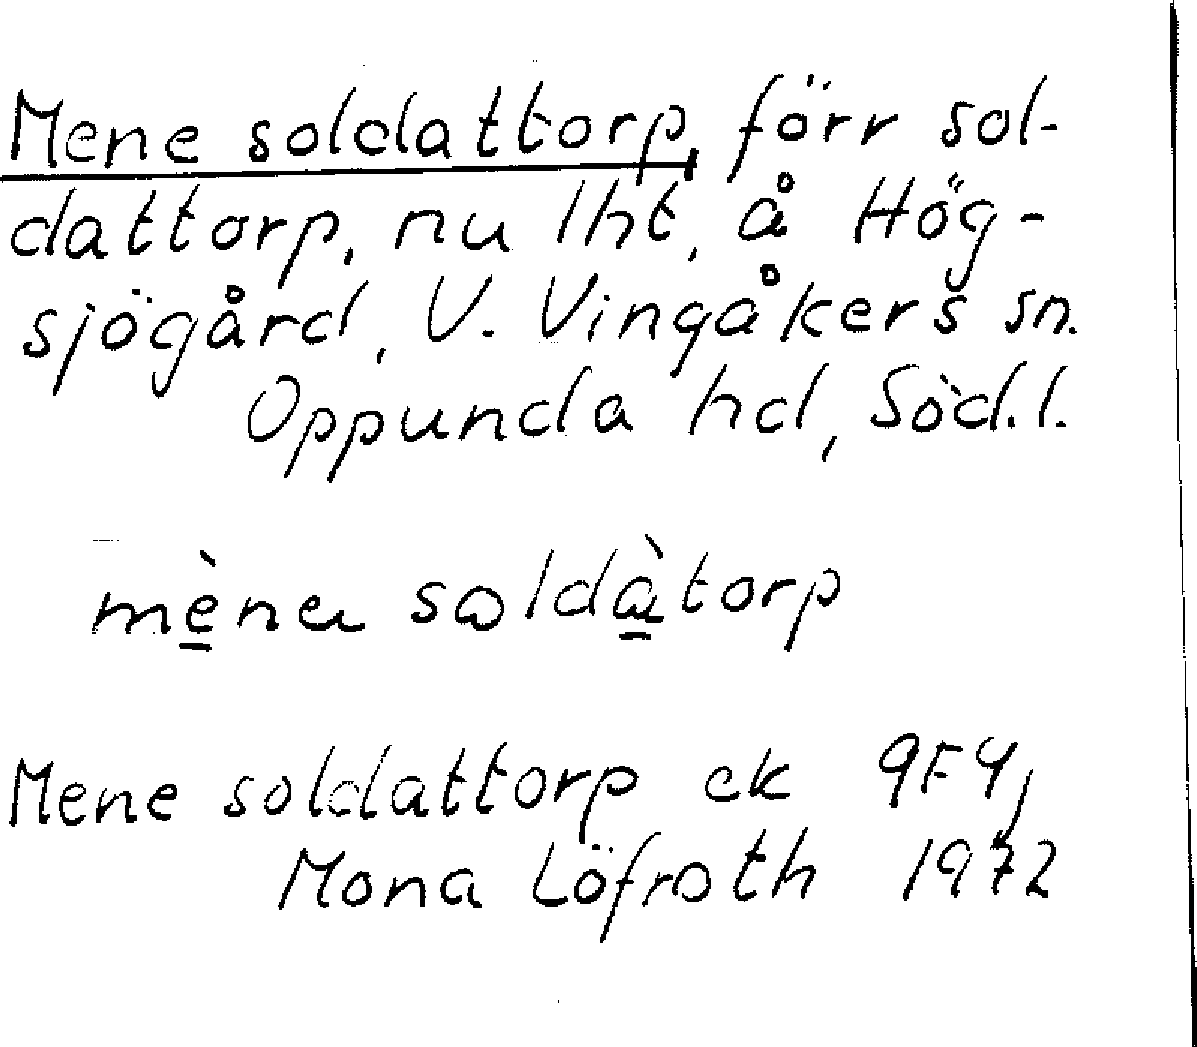 Mene soldattorp, förr sol-
dattorp, nu lht, å Hög-
sjögård, V. Vingåkers sn.
Oppunda hd, Söd.l.
mèna soldàtorp
Mene soldattorp ek 9F4j
Mona Löfroth 1972